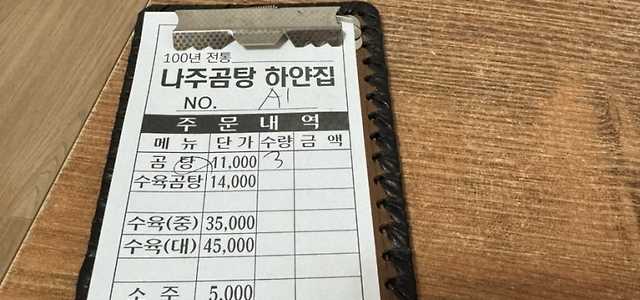 100년 전통
나주곰탕 하얀집
NO. A1
주 문 내 역
메 뉴 단 가 수량 금 액
곰 탕 11,000 3
수육곰탕 14,000
수육(중) 35,000
수육(대) 45,000
소 주 5,000